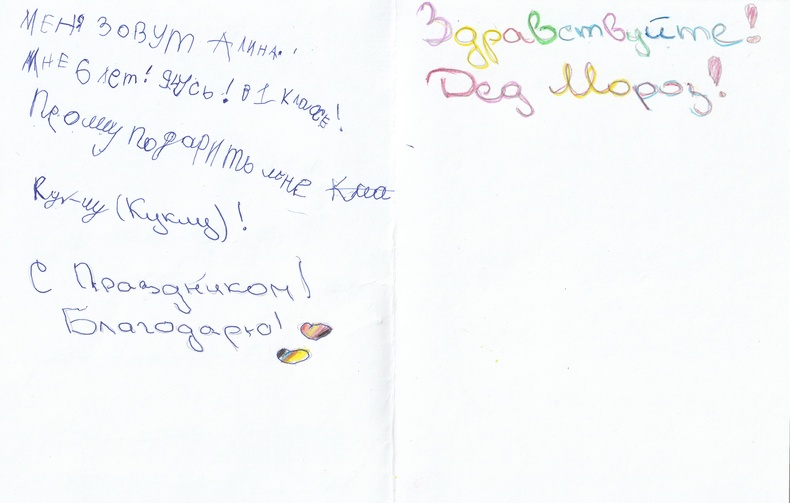 Здравствуйте!
Дед Мороз!
Меня зовут Алина!
Мне 6 лет! Учусь! в 1 классе!
Прошу подарить мне
(Куклу)!
С Праздником!
Благодарю!